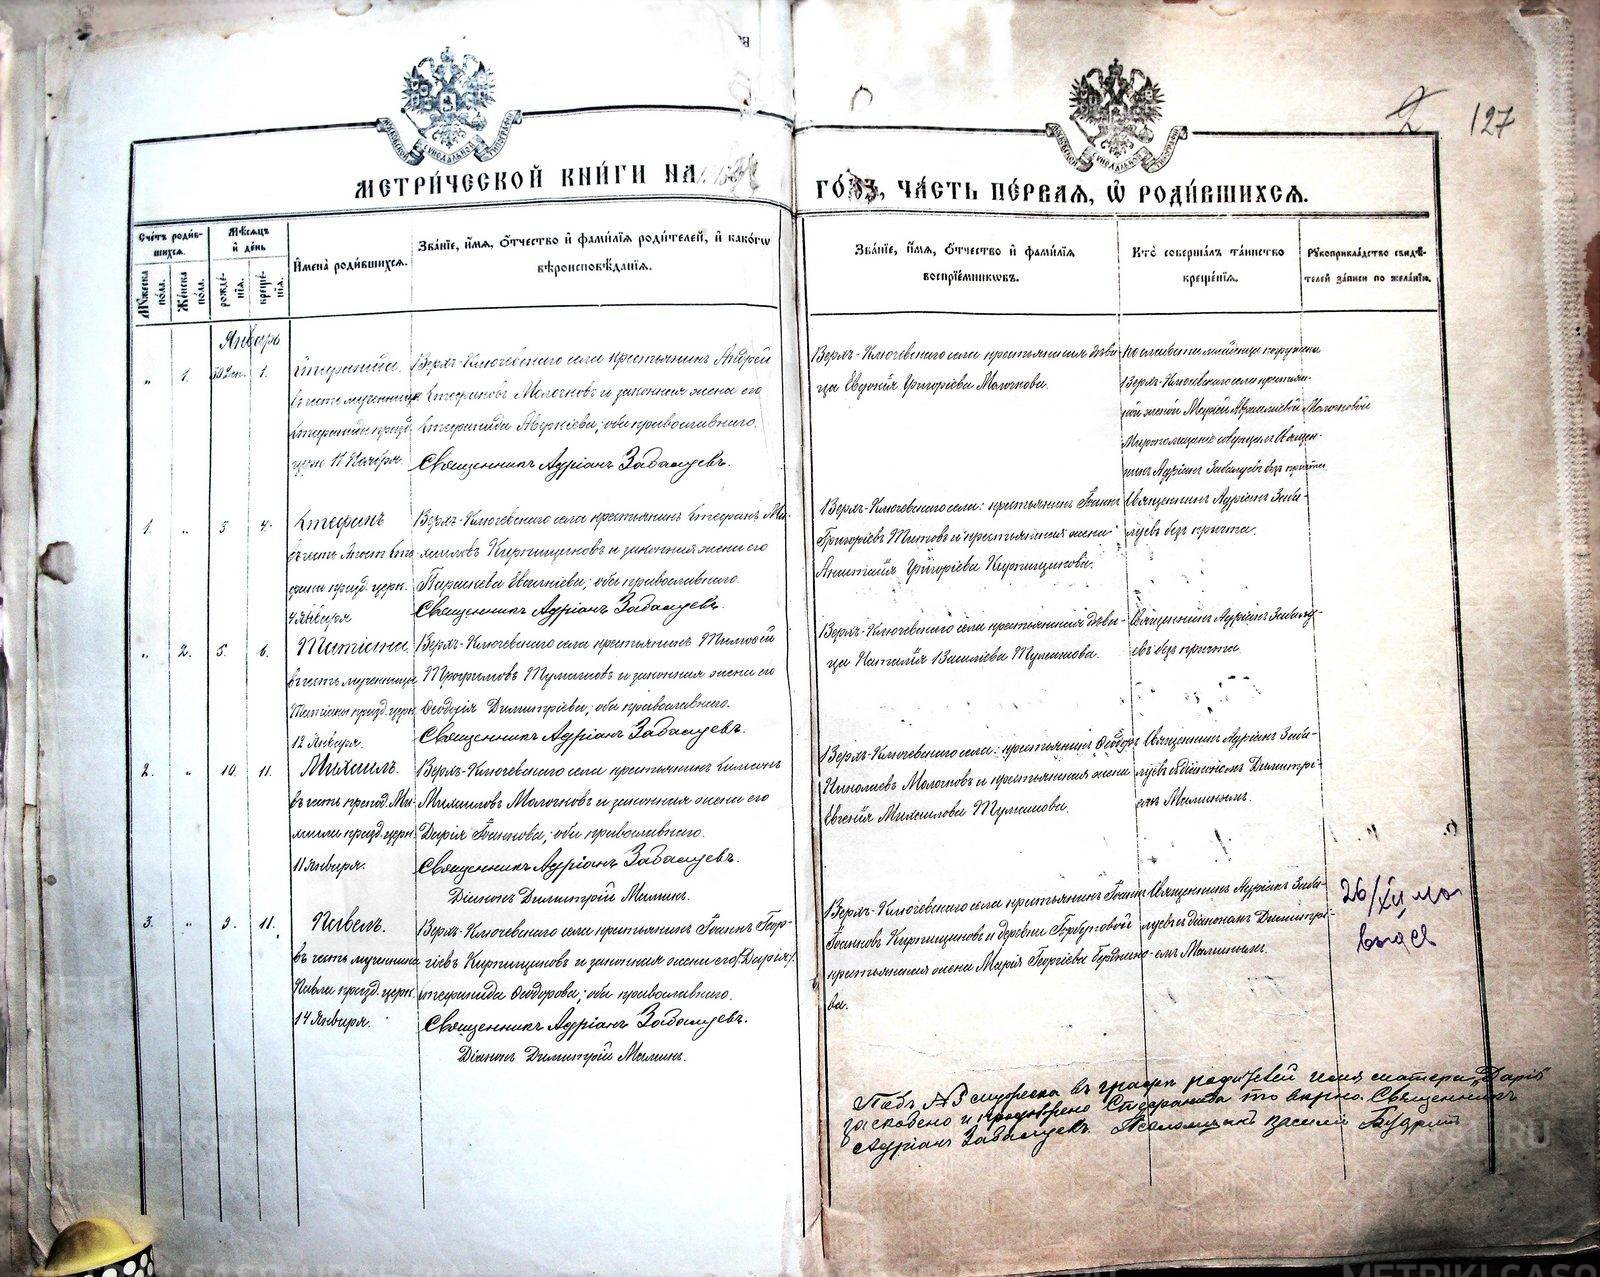 МЕТРИ́ЧЕСКОЙ КНИ́ГИ НА
ГО́ДЪ, ЧА́СТЬ ПЕ́РВАЯ, Ѡ҆ РОДИ́ВШИХСЯ.
МОСКОВСКОЙ СѴНОДАЛЬНОЙ ТИПОГРАФІИ
2 127
Сче́тъ роди́в-
шихся.
Мѣ́сяцъ
и҆ де́нь
Му́жеска по́ла.
Же́нска по́ла.
рожде́-
нія.
креще́-
нія.
И҆мена̀ роди́вшихся.
Зва́ніе, и҆́мя, ѻ҆́тчество и҆ фами́лія роди́телей, и҆ како́гѡ
вѣроисповѣ́данія.
Зва́ніе, и҆́мя, ѻ҆́тчество и҆ фами́лія
воспріе́мниковъ.
Кто̀ соверша́лъ та́инство
креще́нія.
Рꙋкоприкла́дство свидѣ́-
телей за́писи по жела́нію.
Январь
„ 1. 30 Дек. 1.
Стефанида.
въ честь мученицы
Стефаниды празд.
церк. 11 Ноября.
Верхъ-Ключевскаго села крестьянинъ Андрей
Стефановъ Молочковъ и законная жена его
Стефанида Аверкіева, оба православнаго.
Священникъ Адріанъ Забалуевъ.
Верхъ-Ключевскаго села крестьянская дѣви-
ца Евдокія Григоріева Молочкова.
По слабости младенца погружена
Верхъ-Ключевскаго села крестьян-
ской женой Молочковой
Миропомазаніе совершалъ Священ-
никъ Адріанъ Забалуевъ безъ причта.
1. „ 3 4.
Стефанъ
въ честь Апост. Сте-
фана празд. церк.
4 Января
Верхъ-Ключевскаго села крестьянинъ Стефанъ Ми-
хаиловъ Кирпищиковъ и законная жена его
Параскева Евгеніева, оба православнаго.
Священникъ Адріанъ Забалуевъ.
Верхъ-Ключевскаго села: крестьянинъ Іоаннъ
Григоріевъ Титовъ и крестьянская жена
Анастасія Григоріева Кирпищикова.
Священникъ Адріанъ Заба-
луевъ безъ причта.
„ 2. 5. 6.
Татіана.
въ честь мученицы
Татіаны празд. церк.
12 Января.
Верхъ-Ключевскаго села крестьянинъ Тимофей
Трофимовъ Тумаковъ и законная жена его
Ѳеодосія Димитріева, оба православнаго.
Священникъ Адріанъ Забалуевъ.
Верхъ-Ключевскаго села крестьянская дѣви-
ца Наталія Василіева Тумакова.
Священникъ Адріанъ Забалу-
евъ безъ причта.
2. „ 10. 11.
Михаилъ.
въ честь препод. Ми-
хаила празд. церк.
11 Января.
Верхъ-Ключевскаго села крестьянинъ Симеонъ
Михаиловъ Молочковъ и законная жена его
Дарія Іоаннова, оба православнаго.
Священникъ Адріанъ Забалуевъ.
Діаконъ Димитрій Малининъ.
Верхъ-Ключевскаго села: крестьянинъ Ѳеодоръ
Николаевъ Молочковъ и крестьянская жена
Евгенія Михаилова Тумакова.
Священникъ Адріанъ Заба-
луевъ съ діакономъ Димитрі-
емъ Малининымъ.
3. „ 9. 11.
Павелъ.
въ честь мученика
Павла празд. церк.
14 Января.
Верхъ-Ключевскаго села крестьянинъ Іоаннъ Геор-
гіевъ Кирпищиковъ и законная жена его (Дарія)
Стефанида Ѳеодорова, оба православнаго.
Священникъ Адріанъ Забалуевъ.
Діаконъ Димитрій Малининъ.
Верхъ-Ключевскаго села крестьянинъ Іоаннъ
Іоанновъ Кирпищиковъ и деревни
крестьянская жена Марія Георгіева
ва.
Священникъ Адріанъ Заба-
луевъ съ діакономъ Димитрі-
емъ Малининымъ.
26/XII
выдов
Подъ №3 мужеска въ графѣ родителей имя матери „Дарія“
заскоблено и Стефанида то вѣрно. Священникъ
Адріанъ Забалуевъ. Псаломщикъ Василій